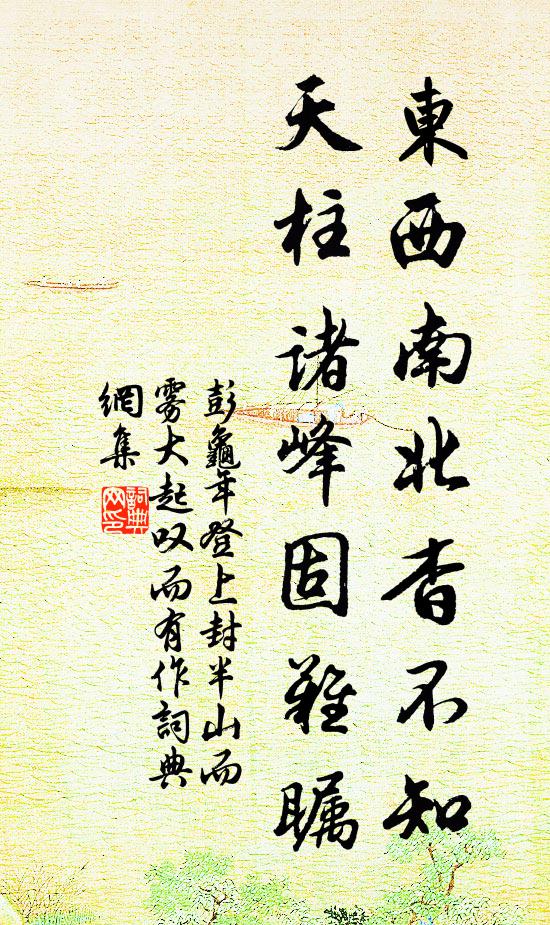 東西南北杳不知
天柱诸峰固難瞩
彭龜年登上封半山而
雾大起叹而有作詞典
網集
詞典
网印